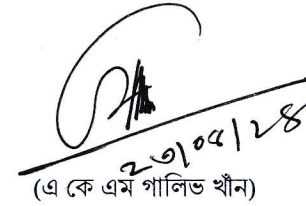 ২৩/০৫/২৪
(এ কে এম গালিভ খাঁন)